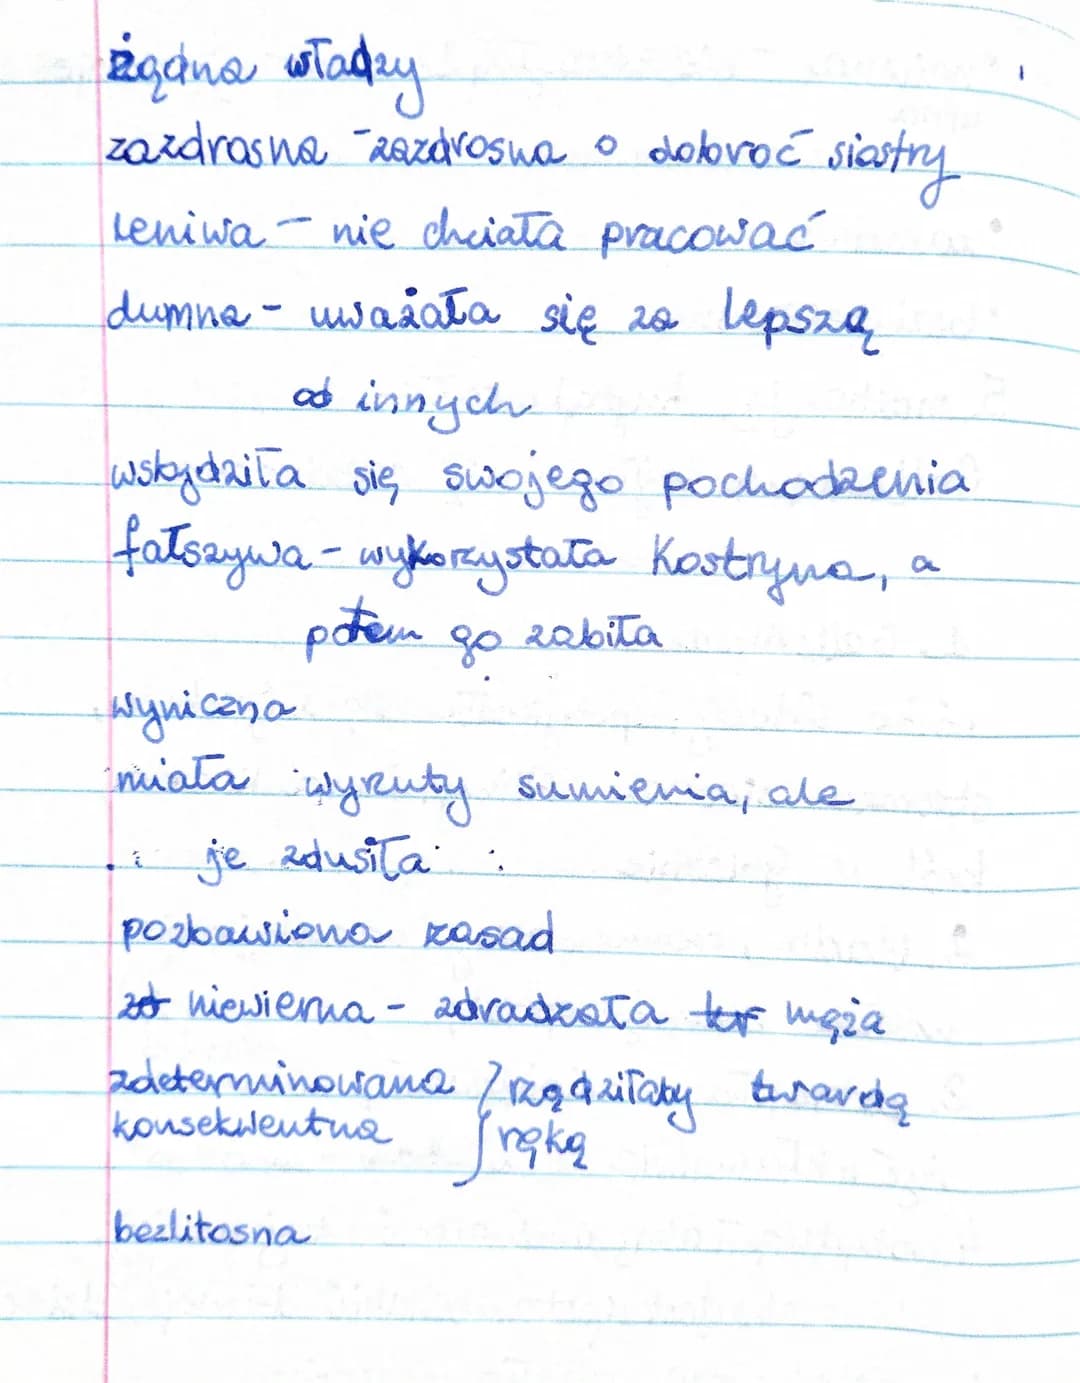 żądna władzy
zazdrosna - zazdrosna o dobroć siostry
leniwa - nie chciała pracować
dumna - uważała się za lepszą
od innych
wstydziła się swojego pochodzenia
fałszywa - wykorzystała Kostryna, a
potem go zabiła
wyniczna
miała wyrzuty sumienia, ale
je zdusiła
pozbawiona zasad
niewierna - zdradzała męża
zdeterminowana } rządziłaby twardą
konsekwentna } ręką
bezlitosna